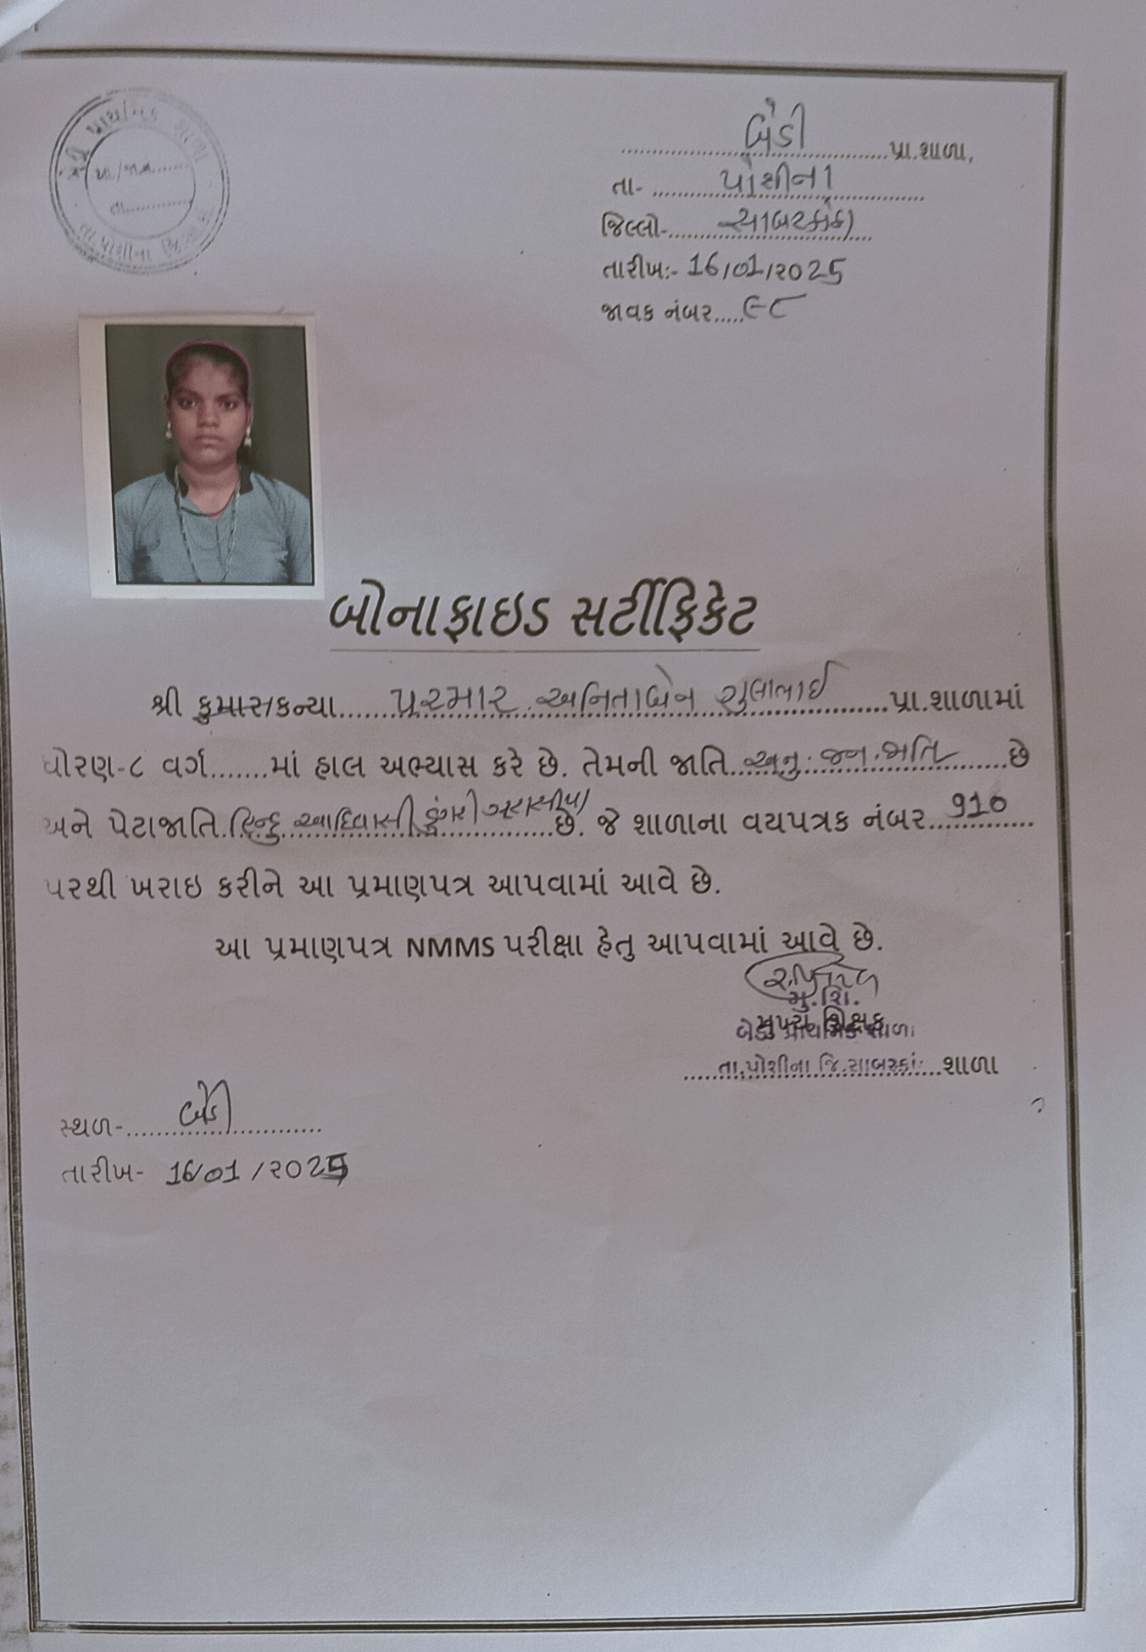 પ્રાથમિક શાળા
આ/જા.નં.........
તા..............
તા.પોશીના
બેડી પ્રા.શાળા,
તા- પોશીના
જિલ્લો- સાબરકાંઠા
તારીખ:- 16/01/2025
જાવક નંબર.....૯૮
બોનાફાઇડ સર્ટીફિકેટ
શ્રી કુમાર/કન્યા..... પરમાર અનિતાબેન ......પ્રા.શાળામાં
ધોરણ-૮ વર્ગ.......માં હાલ અભ્યાસ કરે છે. તેમની જાતિ..અનુ.જન.જાતિ......છે
અને પેટાજાતિ.હિન્દુ આદિવાસી ડુંગરી ગરાસીયા છે. જે શાળાના વયપત્રક નંબર..910
પરથી ખરાઇ કરીને આ પ્રમાણપત્ર આપવામાં આવે છે.
આ પ્રમાણપત્ર NMMS પરીક્ષા હેતુ આપવામાં આવે છે.
મુ.શિ.
મુખ્ય શિક્ષક
બેડી પ્રાથમિક શાળા
તા.પોશીના જિ.સાબરકાં. શાળા
સ્થળ-........બેડી........
તારીખ- 16/01/2025